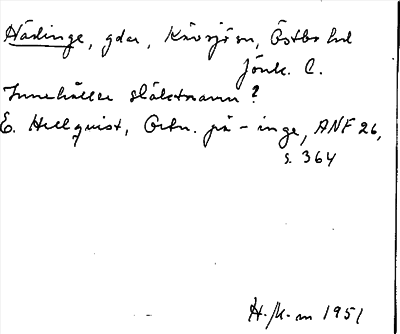 Nävlinge, gdar, Kävsjö sn, Östbo hd
Jönk. l.
Innehåller släktnamn?
E. Hellquist, Ortn. på -inge, ANF 26,
s. 364
H. /k-m 1951